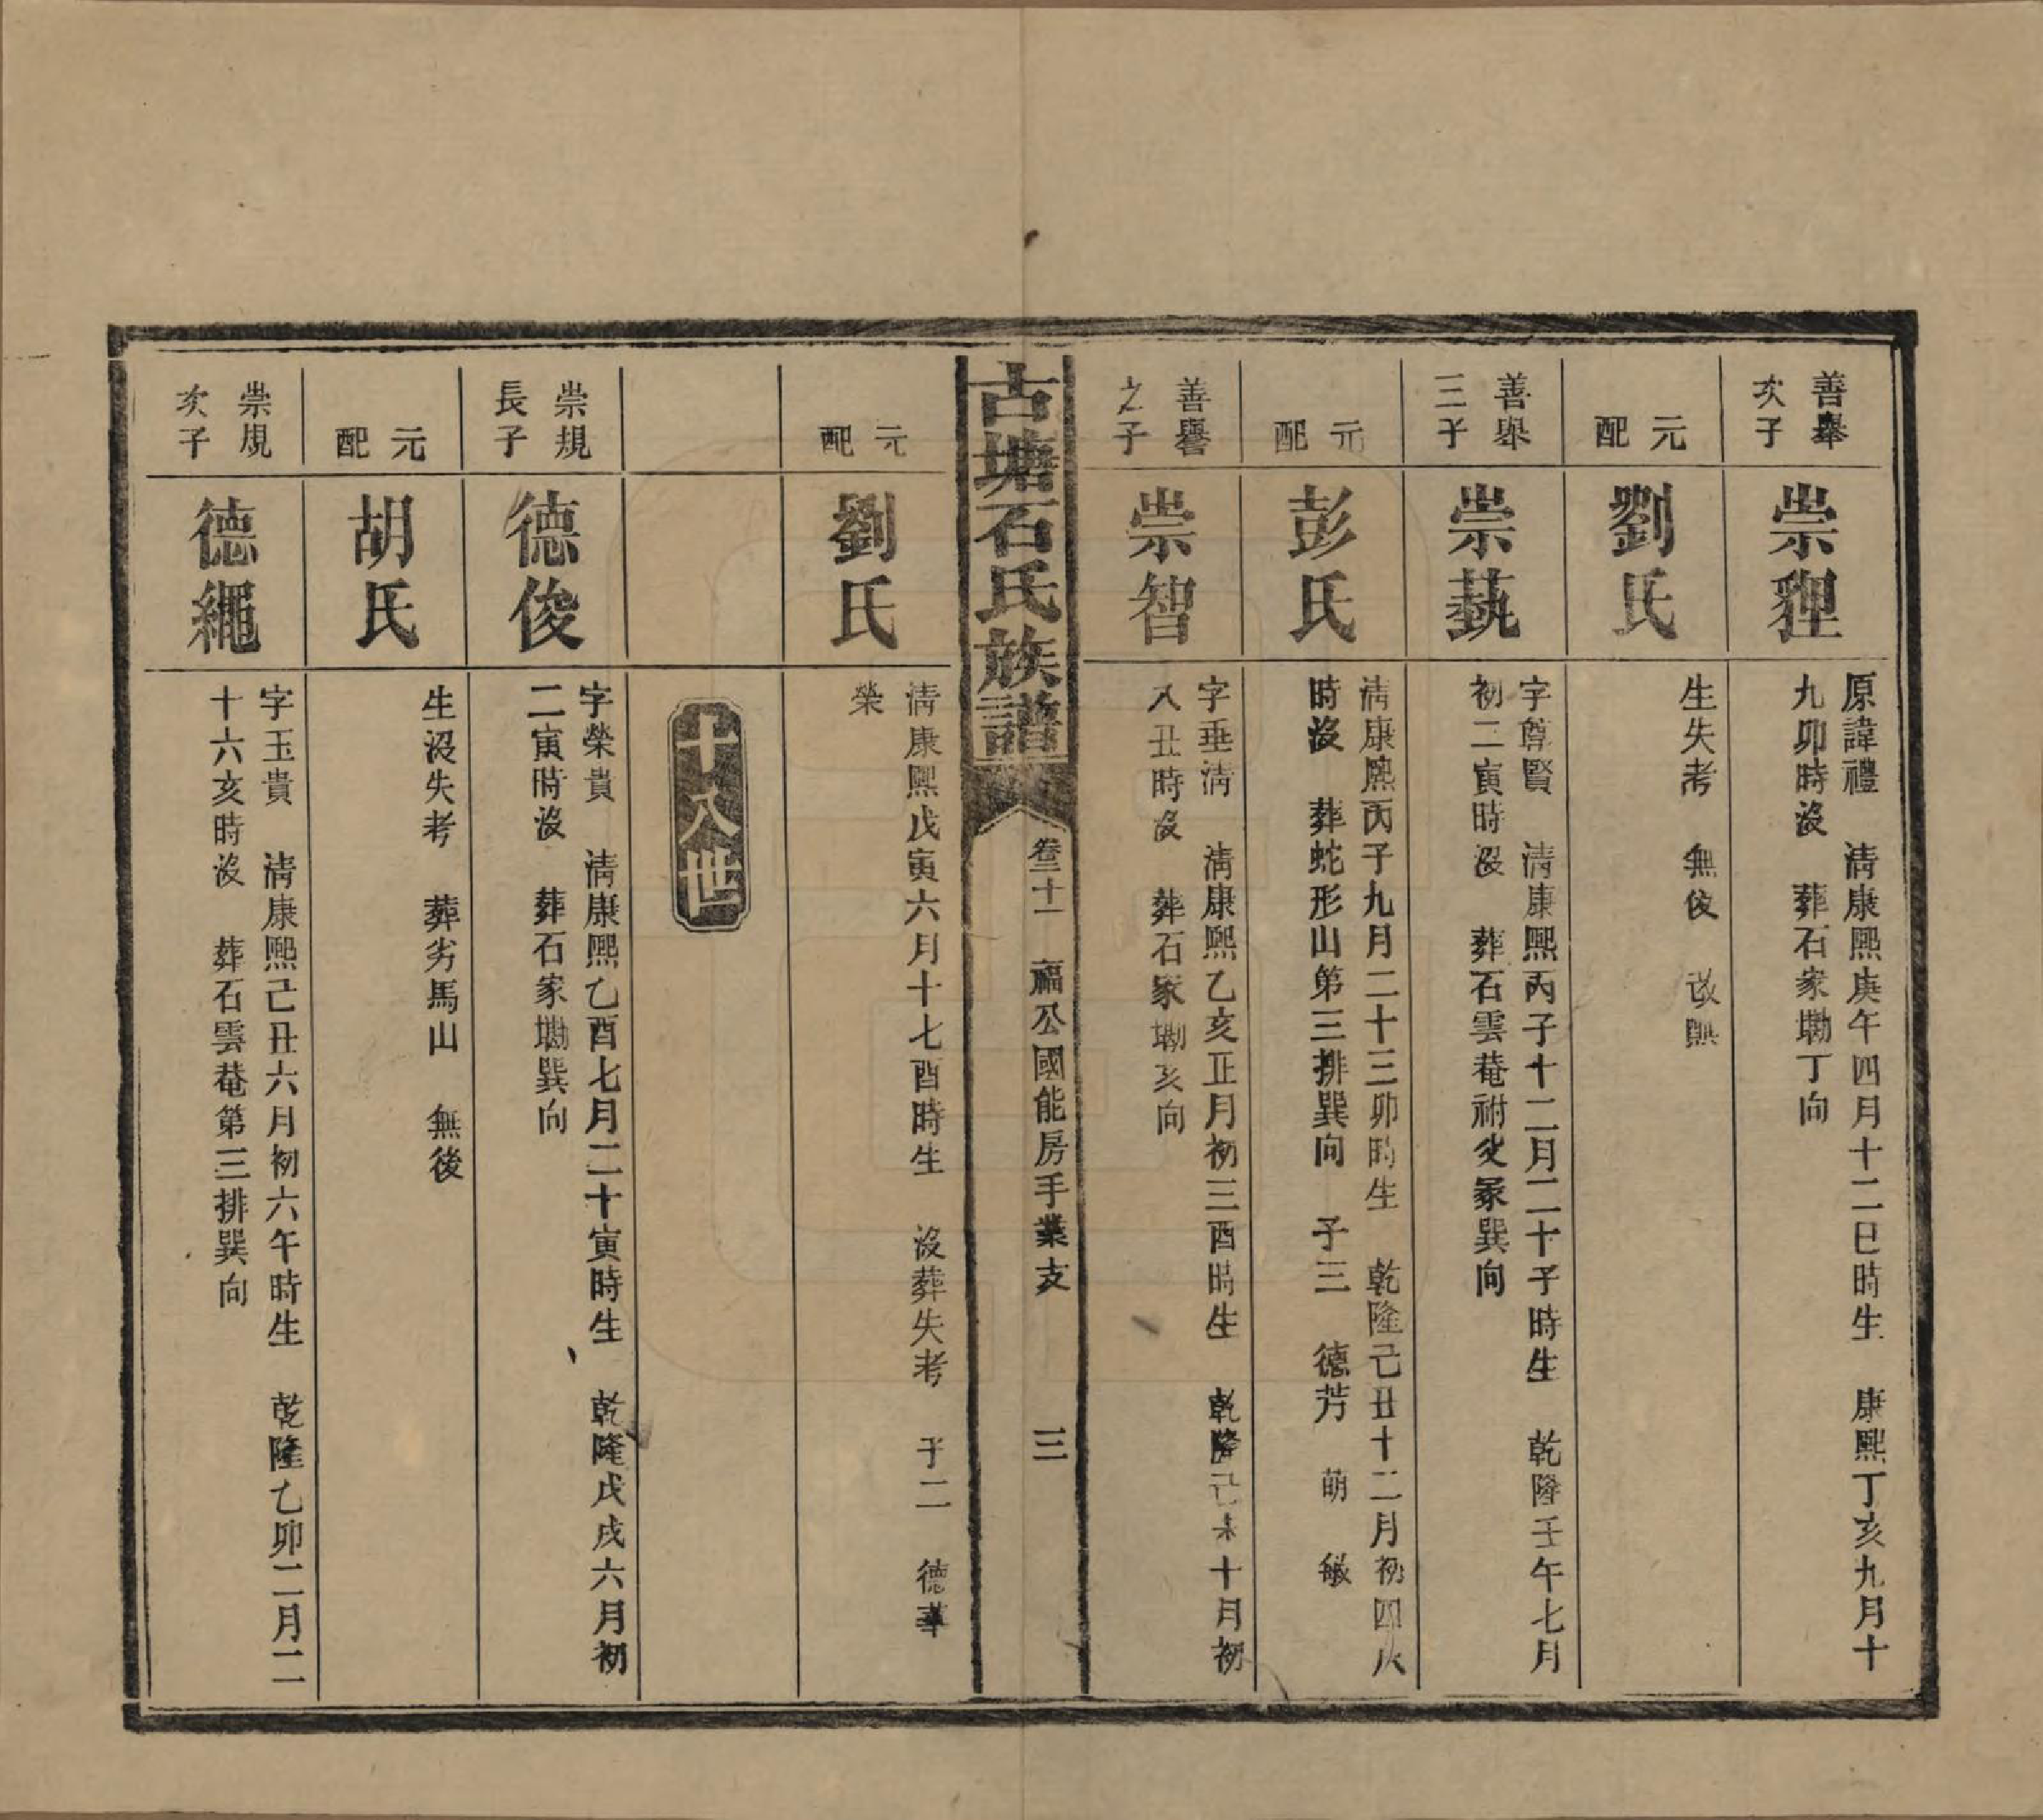 善舉
次子
崇貍
原諱禮 淸康熙庚午四月十二巳時生 康熙丁亥九月十
九卯時沒 葬石家塘丁向
元
配
劉氏
生失考 無後 改熙
善舉
三子
崇藝
字尊賢 淸康熙丙子十二月二十子時生 乾隆壬午七月
初二寅時沒 葬石雲菴祔父冢巽向
元
配
彭氏
淸康熙丙子九月二十三卯時生 乾隆己丑十二月初四戌
時沒 葬蛇形山第三排巽向 子三 德芳 萌 敏
善譽
之子
崇智
字垂淸 淸康熙乙亥正月初三酉時生 乾隆己未十月初
八丑時沒 葬石家塘亥向
古塘石氏族譜
卷二十一 福公國能房手業支 三
元
配
劉氏
淸康熙戊寅六月十七酉時生 沒葬失考 子二 德華
榮
十八世
崇規
長子
德俊
字榮貴 淸康熙乙酉七月二十寅時生 乾隆戊戌六月初
二寅時沒 葬石家塘巽向
元
配
胡氏
生沒失考 葬劣馬山 無後
崇規
次子
德繩
字玉貴 淸康熙己丑六月初六午時生 乾隆乙卯二月二
十六亥時沒 葬石雲菴第三排巽向